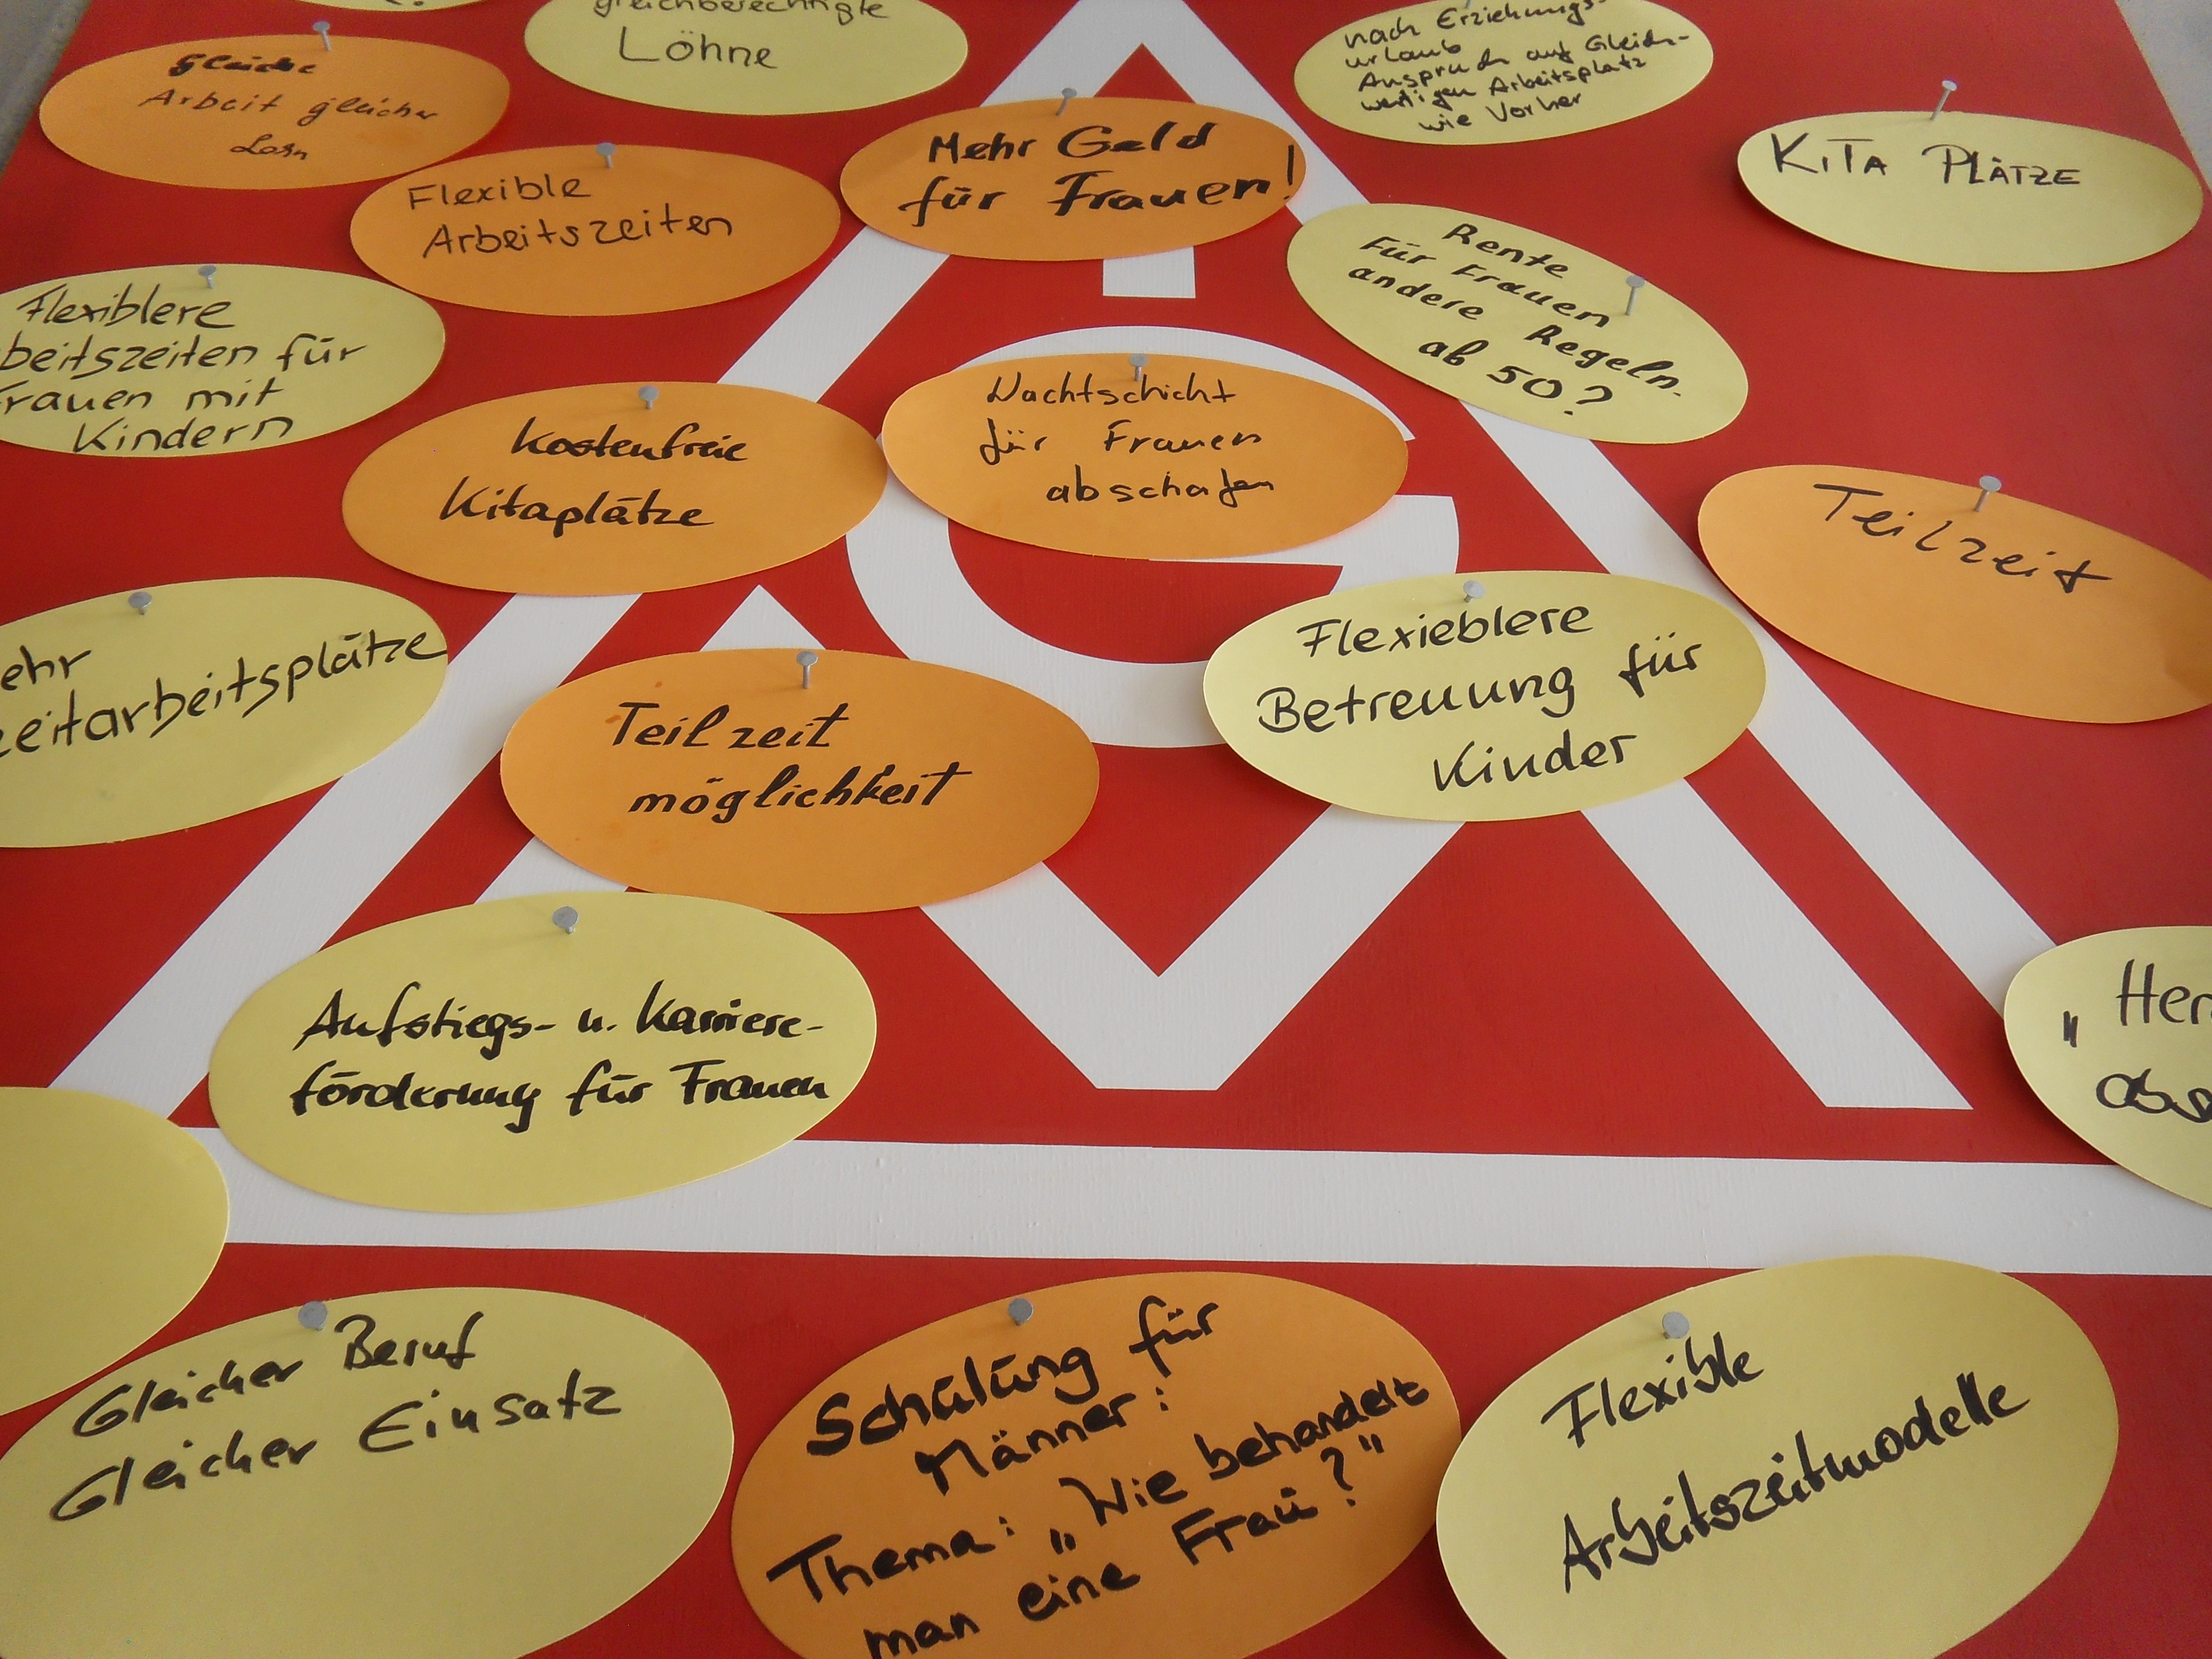 Gleiche
Arbeit gleicher
Lohn
gleichberechtigte
Löhne
nach Erziehungs-
urlaub
Anspruch auf Gleich-
wertigen Arbeitsplatz
wie Vorher
Mehr Geld
für Frauen!
KITA PLÄTZE
Flexible
Arbeitszeiten
Rente
Für Frauen
andere Regeln.
ab 50?
Flexiblere
beitszeiten für
rauen mit
Kindern
Kostenfreie
Kitaplätze
Nachtschicht
für Frauen
abschafen
Teilzeit
ehr
zeitarbeitsplätze
Teilzeit
möglichkeit
Flexieblere
Betreuung für
Kinder
Aufstiegs- u. Karriere-
förderung für Frauen
„Her
abs
Gleicher Beruf
Gleicher Einsatz
Schulung für
Männer:
Thema: „Wie behandelt
man eine Frau?"
Flexible
Arbeitszeitmodelle